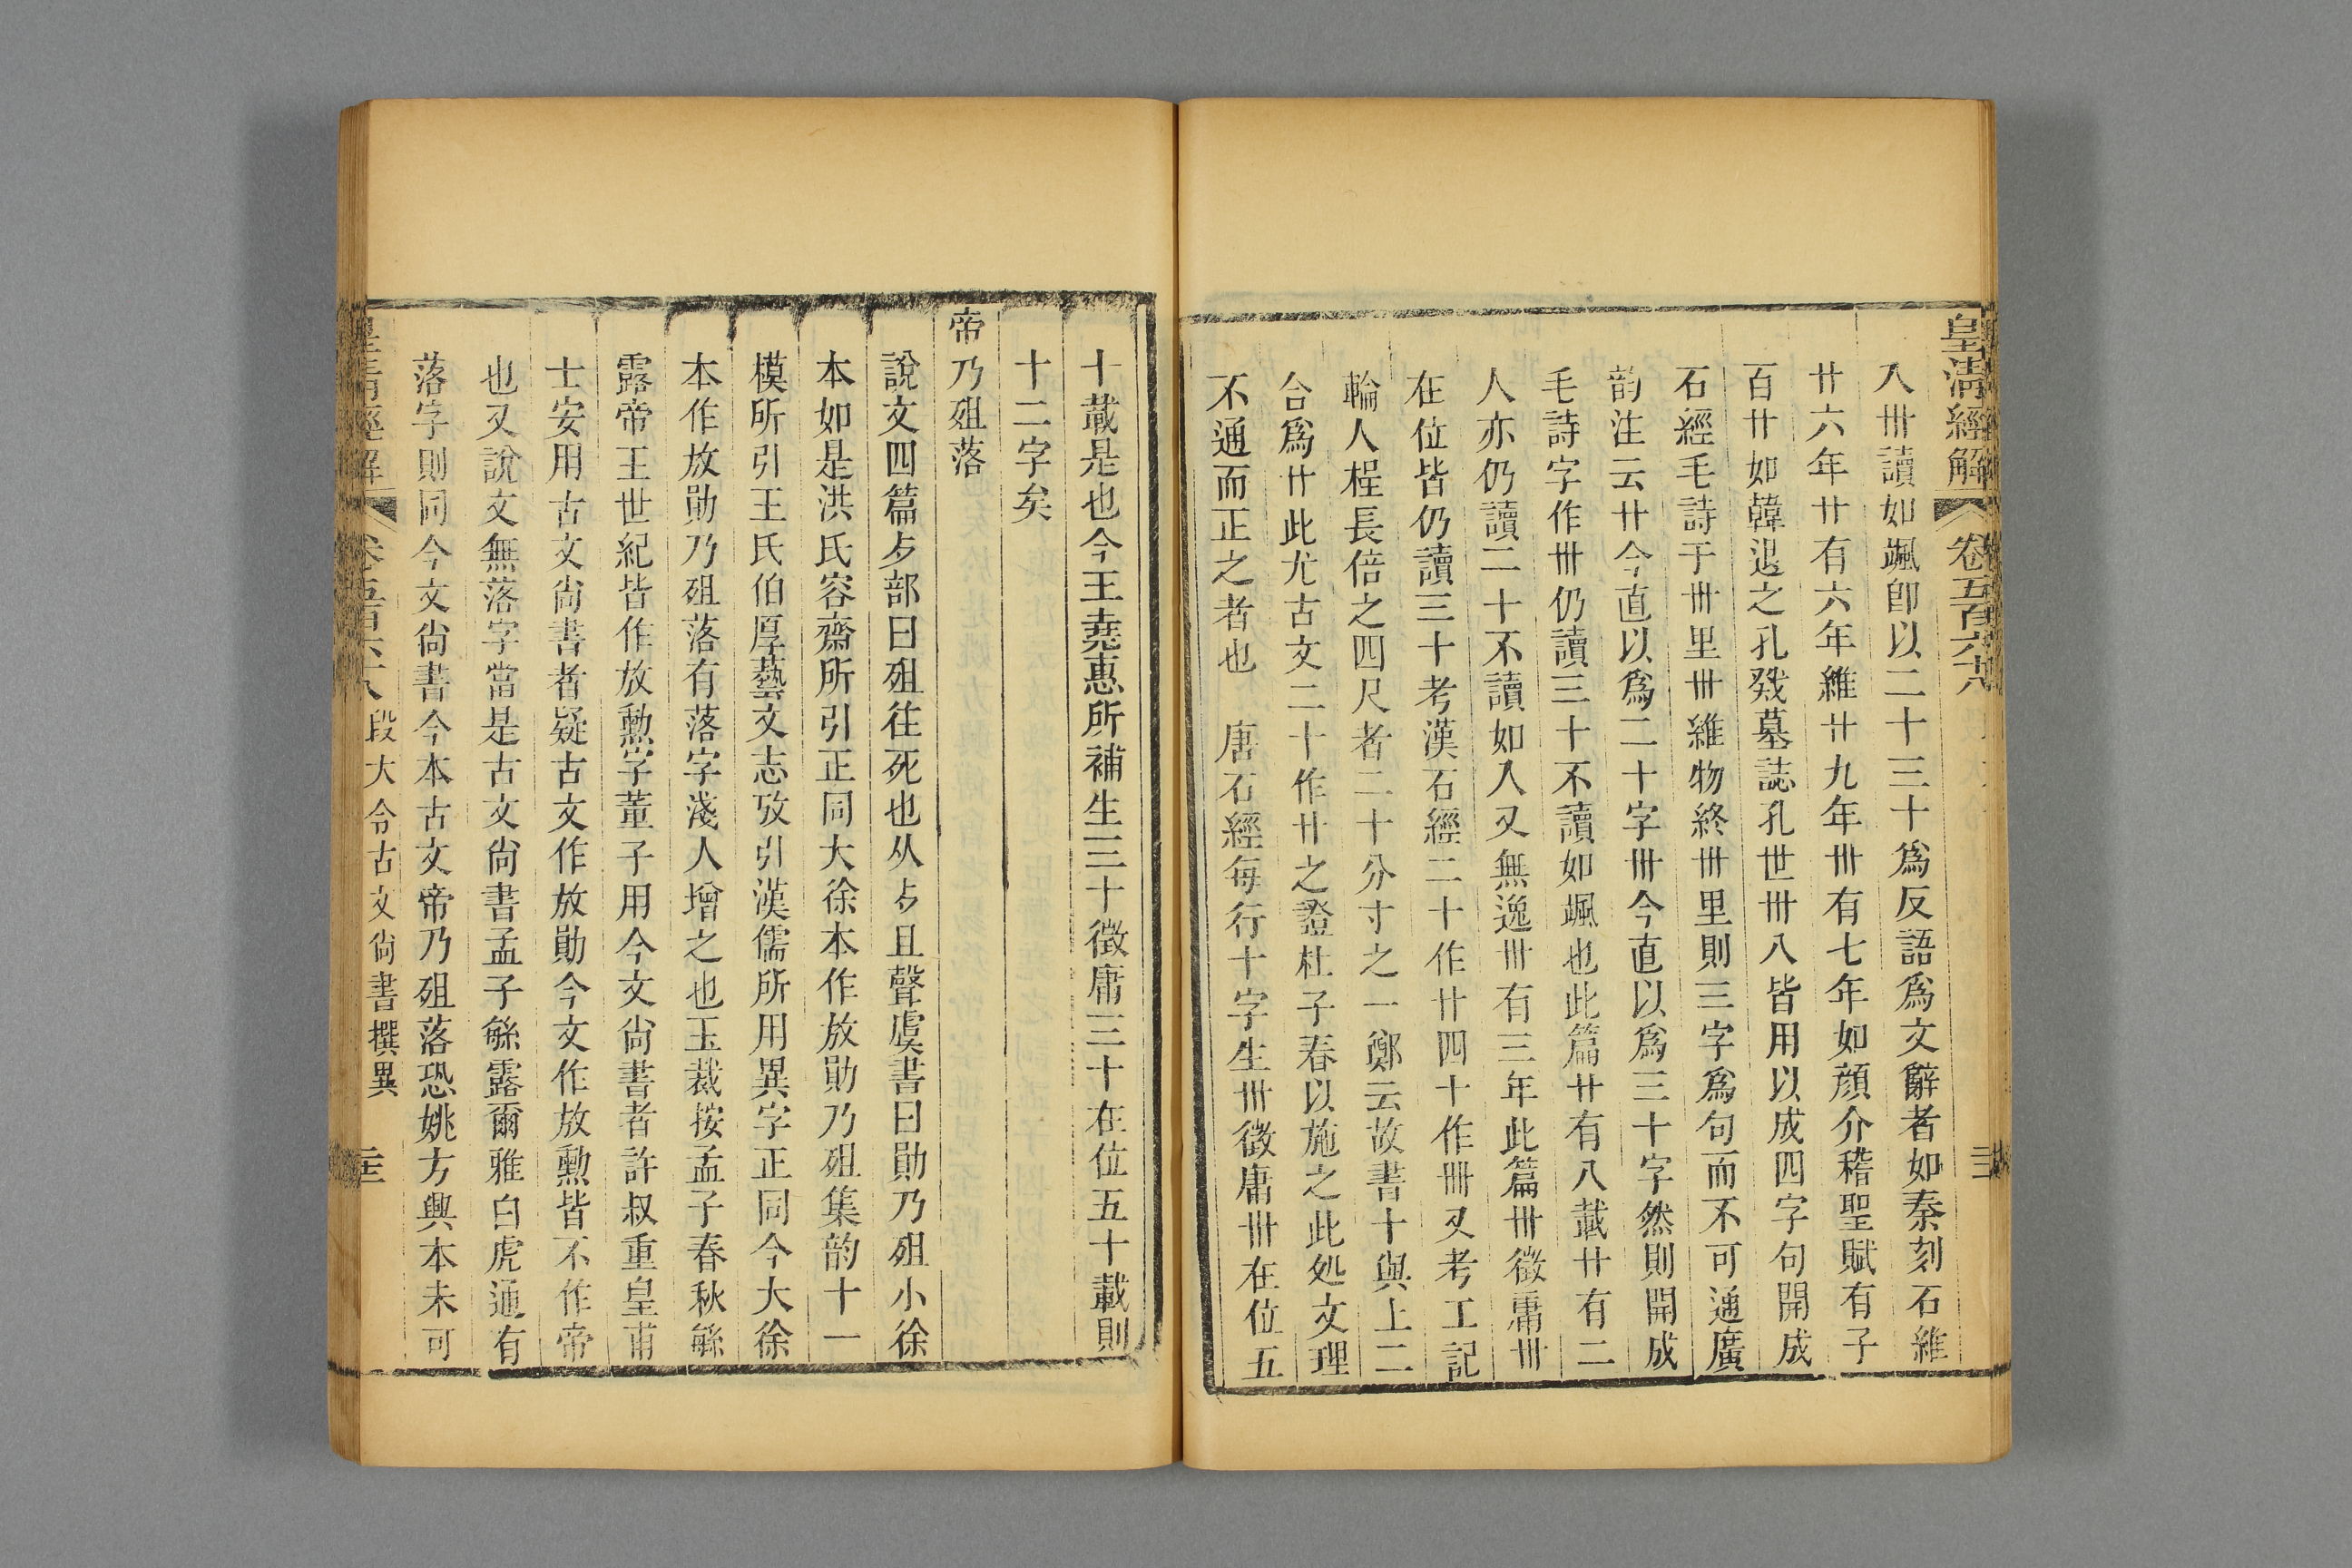 皇淸經解 卷五百六十八
入卅讀如颯卽以二十三十爲反語爲文辭者如秦刻石維
廿六年廿有六年維廿九年卅有七年如顏介稽聖賦有子
百廿如韓退之孔戣墓誌孔世卅八皆用以成四字句開成
石經毛詩于卅里卅維物終卅里則三字爲句而不可通廣
韵注云廿今直以爲二十字卅今直以爲三十字然則開成
毛詩字作卅仍讀三十不讀如颯也此篇廿有八載廿有二
人亦仍讀二十不讀如入又無逸卅有三年此篇卅徵庸卅
在位皆仍讀三十考漢石經二十作廿四十作卌又考工記
輪人桯長倍之四尺者二十分寸之一鄭云故書十與上二
合爲廿此尤古文二十作廿之證杜子春以施之此処文理
不通而正之者也　唐石經每行十字生卅徵庸卅在位五
十載是也今王堯惠所補生三十徵庸三十在位五十載則
十二字矣
帝乃殂落
說文四篇歺部曰殂往死也从歺且聲虞書曰勛乃殂小徐
本如是洪氏容齋所引正同大徐本作放勛乃殂集韵十一
模所引王氏伯厚藝文志攷引漢儒所用異字正同今大徐
本作放勛乃殂落有落字淺人增之也玉裁按孟子春秋緐
露帝王世紀皆作放勳字董子用今文尙書者許叔重皇甫
士安用古文尙書者疑古文作放勛今文作放勳皆不作帝
也又說文無落字當是古文尙書孟子緐露爾雅白虎通有
落字則同今文尙書今本古文帝乃殂落恐姚方興本未可
段大令古文尙書撰異